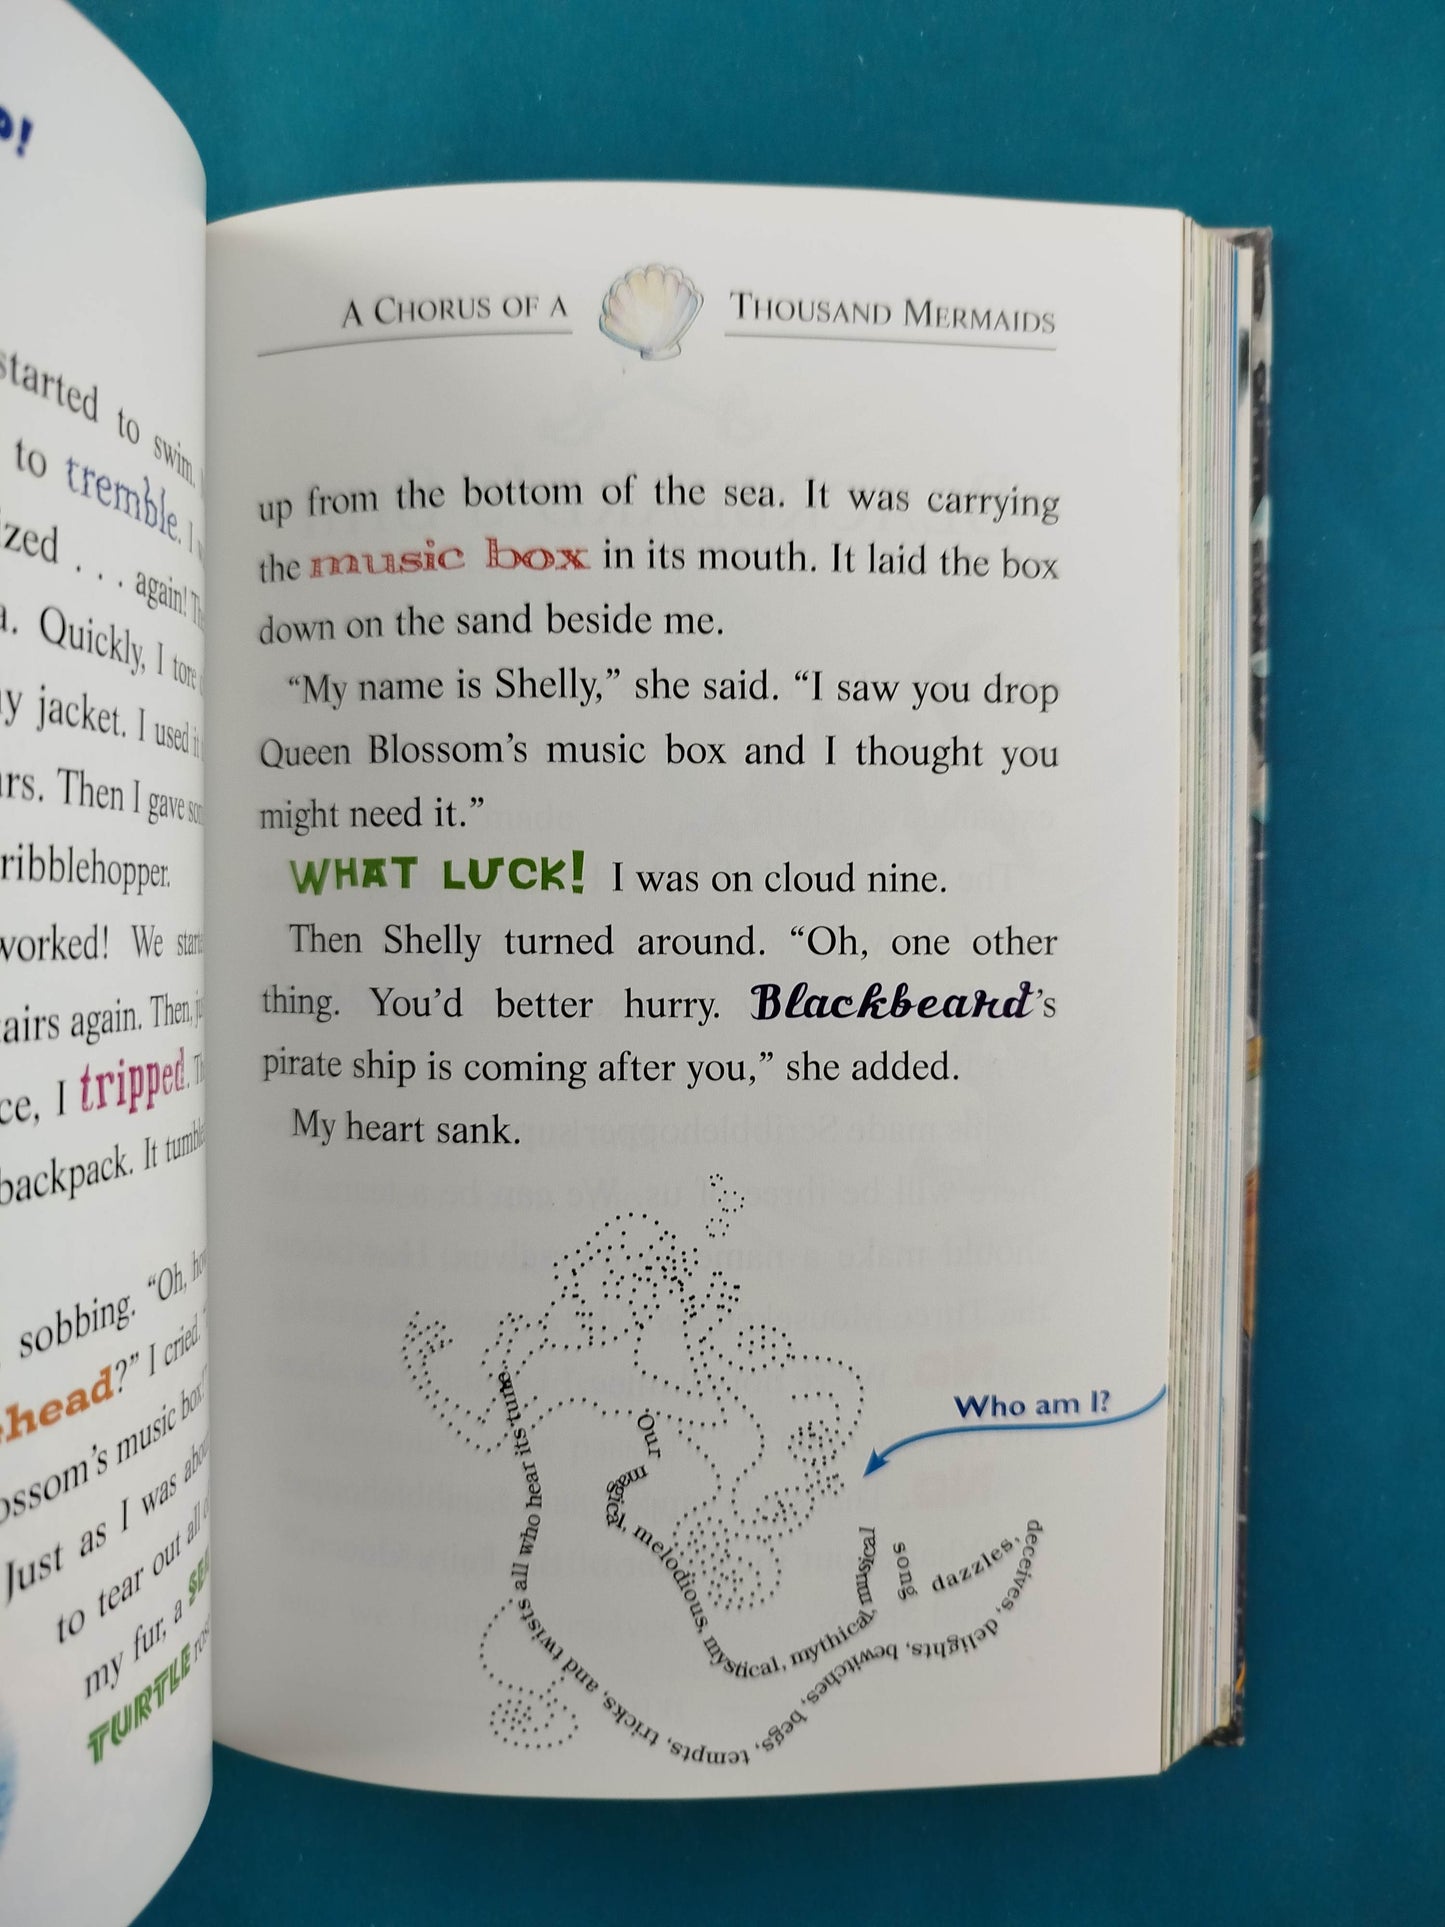 o!
started to swim.
to tremble. I
zed . . . again!
a. Quickly, I tore
y jacket. I used it
rs. Then I gave
ribblehopper.
worked! We
airs again. Then,
ce, I tripped.
backpack. It
sobbing. "Oh,
head?" I cried.
ossom's music box!
Just as I was
to tear out all
my fur, a
TURTLE
A CHORUS OF A THOUSAND MERMAIDS
up from the bottom of the sea. It was carrying
the music box in its mouth. It laid the box
down on the sand beside me.
"My name is Shelly," she said. "I saw you drop
Queen Blossom's music box and I thought you
might need it."
WHAT LUCK! I was on cloud nine.
Then Shelly turned around. "Oh, one other
thing. You'd better hurry. Blackbeard's
pirate ship is coming after you," she added.
My heart sank.
Who am I?
Our magical, melodious, mystical, mythical, musical song dazzles, deceives, delights, bewitches, begs, tempts, tricks, and twists all who hear its tune.